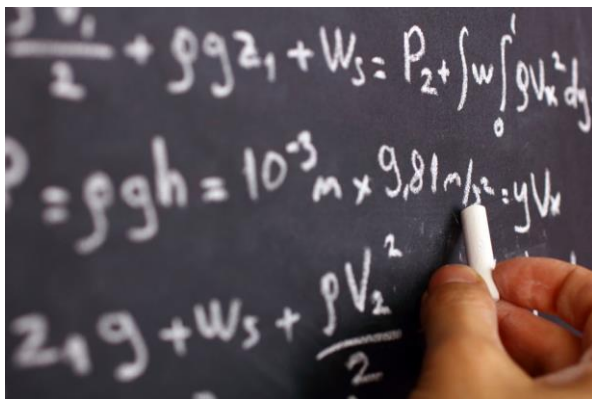 /2 + ρgz₁ + Ws = P₂ + ∫w∫₀¹ρVx²dy
= ρgh = 10⁻³ m × 9,81 m/s² = yVx
z₁g + Ws + ρV₂²/2